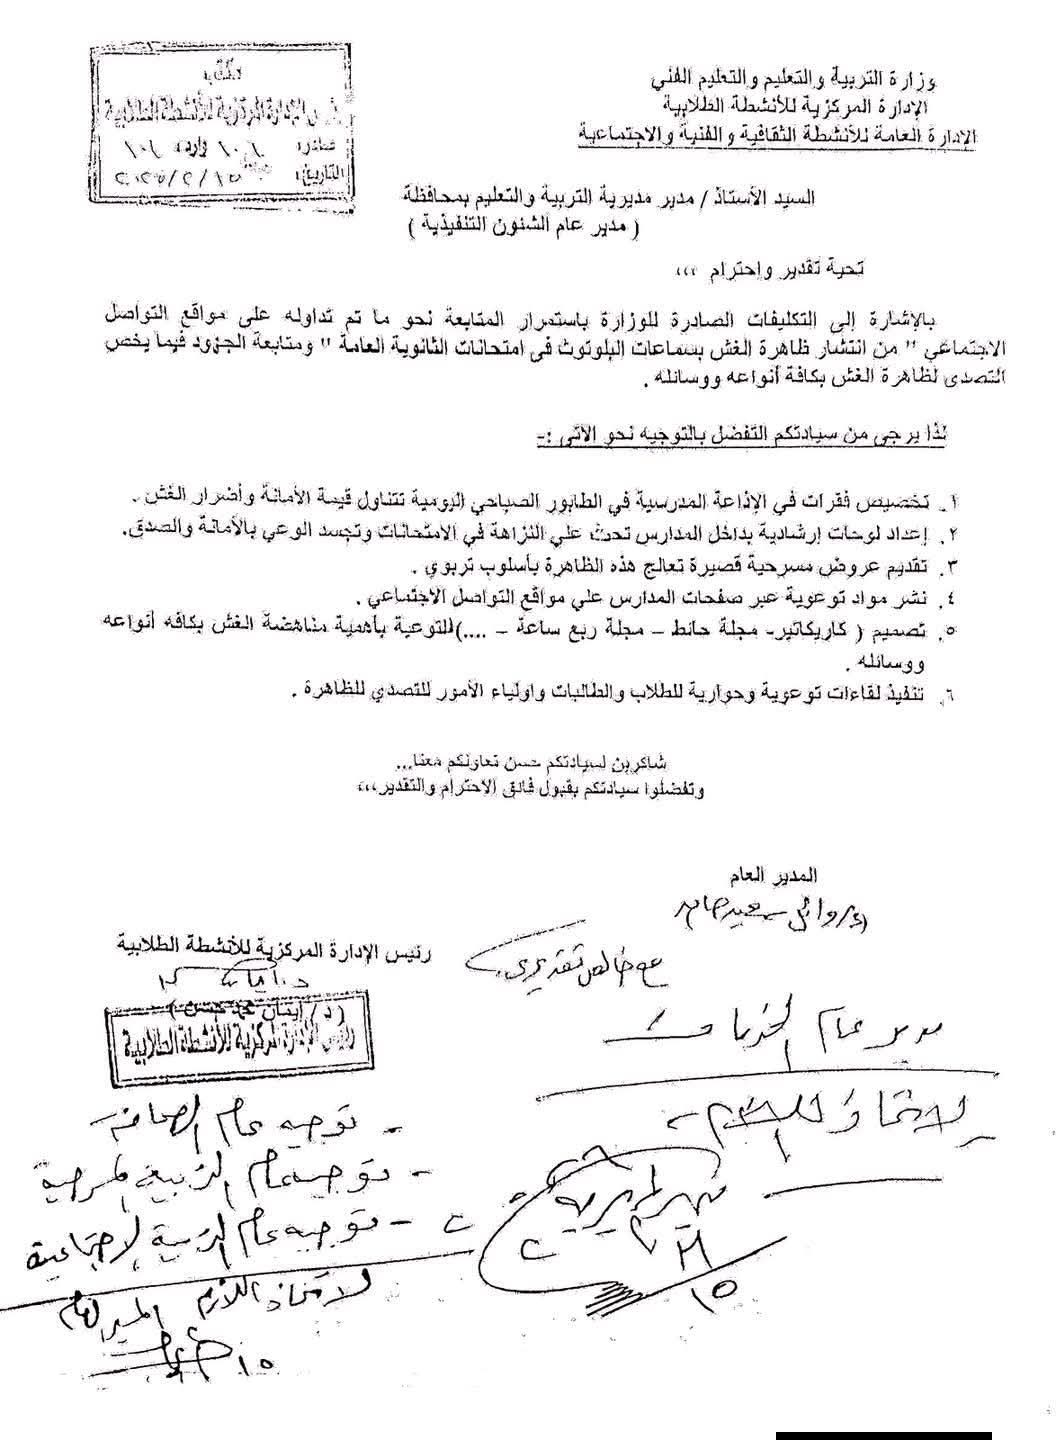 وزارة التربية والتعليم والتعليم الفني
الإدارة المركزية للأنشطة الطلابية
الإدارة العامة للأنشطة الثقافية والفنية والاجتماعية
مكتب
رئيس الإدارة المركزية للأنشطة الطلابية
صادر: ١٠٦ وارد
التاريخ:
السيد الأستاذ / مدير مديرية التربية والتعليم بمحافظة
( مدير عام الشئون التنفيذية )
تحية تقدير واحترام ،،،
بالإشارة إلى التكليفات الصادرة للوزارة باستمرار المتابعة نحو ما تم تداوله على مواقع التواصل
الاجتماعي " من انتشار ظاهرة الغش بسماعات البلوتوث فى امتحانات الثانوية العامة " ومتابعة الجهود فيما يخص
التصدى لظاهرة الغش بكافة أنواعه ووسائله .
لذا يرجى من سيادتكم التفضل بالتوجيه نحو الآتى :-
١. تخصيص فقرات في الإذاعة المدرسية في الطابور الصباحي اليومية تتناول قيمة الأمانة وأضرار الغش .
٢. إعداد لوحات إرشادية بداخل المدارس تحث علي النزاهة في الامتحانات وتجسد الوعي بالأمانة والصدق.
٣. تقديم عروض مسرحية قصيرة تعالج هذه الظاهرة بأسلوب تربوي .
٤. نشر مواد توعوية عبر صفحات المدارس علي مواقع التواصل الاجتماعي .
٥. تصميم ( كاريكاتير- مجلة حائط – مجلة ربع ساعة – ....)للتوعية بأهمية مناهضة الغش بكافه أنواعه
ووسائله .
٦. تنفيذ لقاءات توعوية وحوارية للطلاب والطالبات واولياء الأمور للتصدي للظاهرة .
شاكرين لسيادتكم حسن تعاونكم معنا...
وتفضلوا سيادتكم بقبول فائق الاحترام والتقدير،،،
المدير العام
رئيس الإدارة المركزية للأنشطة الطلابية
(د/ إيمان محمد حسن )
رئيس الإدارة المركزية للأنشطة الطلابية
مع خالص تقديري
مدير عام الخدمات
لاتخاذ اللازم
مدير المديرية
- توجيه عام الصحافة
- توجيه عام التربية المسرحية
- توجيه عام التربية الاجتماعية
لاتخاذ اللازم المدير العام